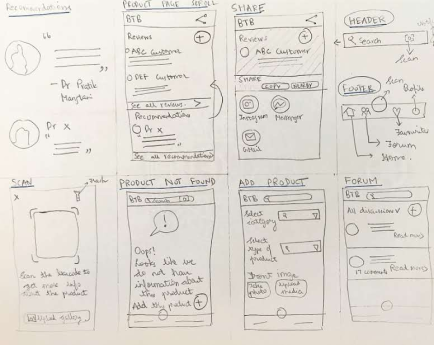 Recommendations
"
— Dr Pratik
"
Dr X
"
PRODUCT PAGE SCROLL
BTB
Reviews
ABC Customer
DEF Customer
See all reviews >
Recommendations
Dr X
See all recommendations
SHARE
BTB
Reviews
ABC Customer
SHARE
COPY
NEARBY
Instagram
Messenger
Gmail
HEADER
Search
Scan
FOOTER
Scan
Profile
Favourites
Forum
Home
SCAN
X
Scan the barcode to
get more info
about the product
Upload gallery
PRODUCT NOT FOUND
BTB
!
Oops!
Looks like we
do not have
information about
the product
Add the product +
ADD PRODUCT
BTB
Select
category
Select
type of
product
Front image
Take
photo
Upload
media
FORUM
BTB
All discussions
Read more
17 comments
Read more